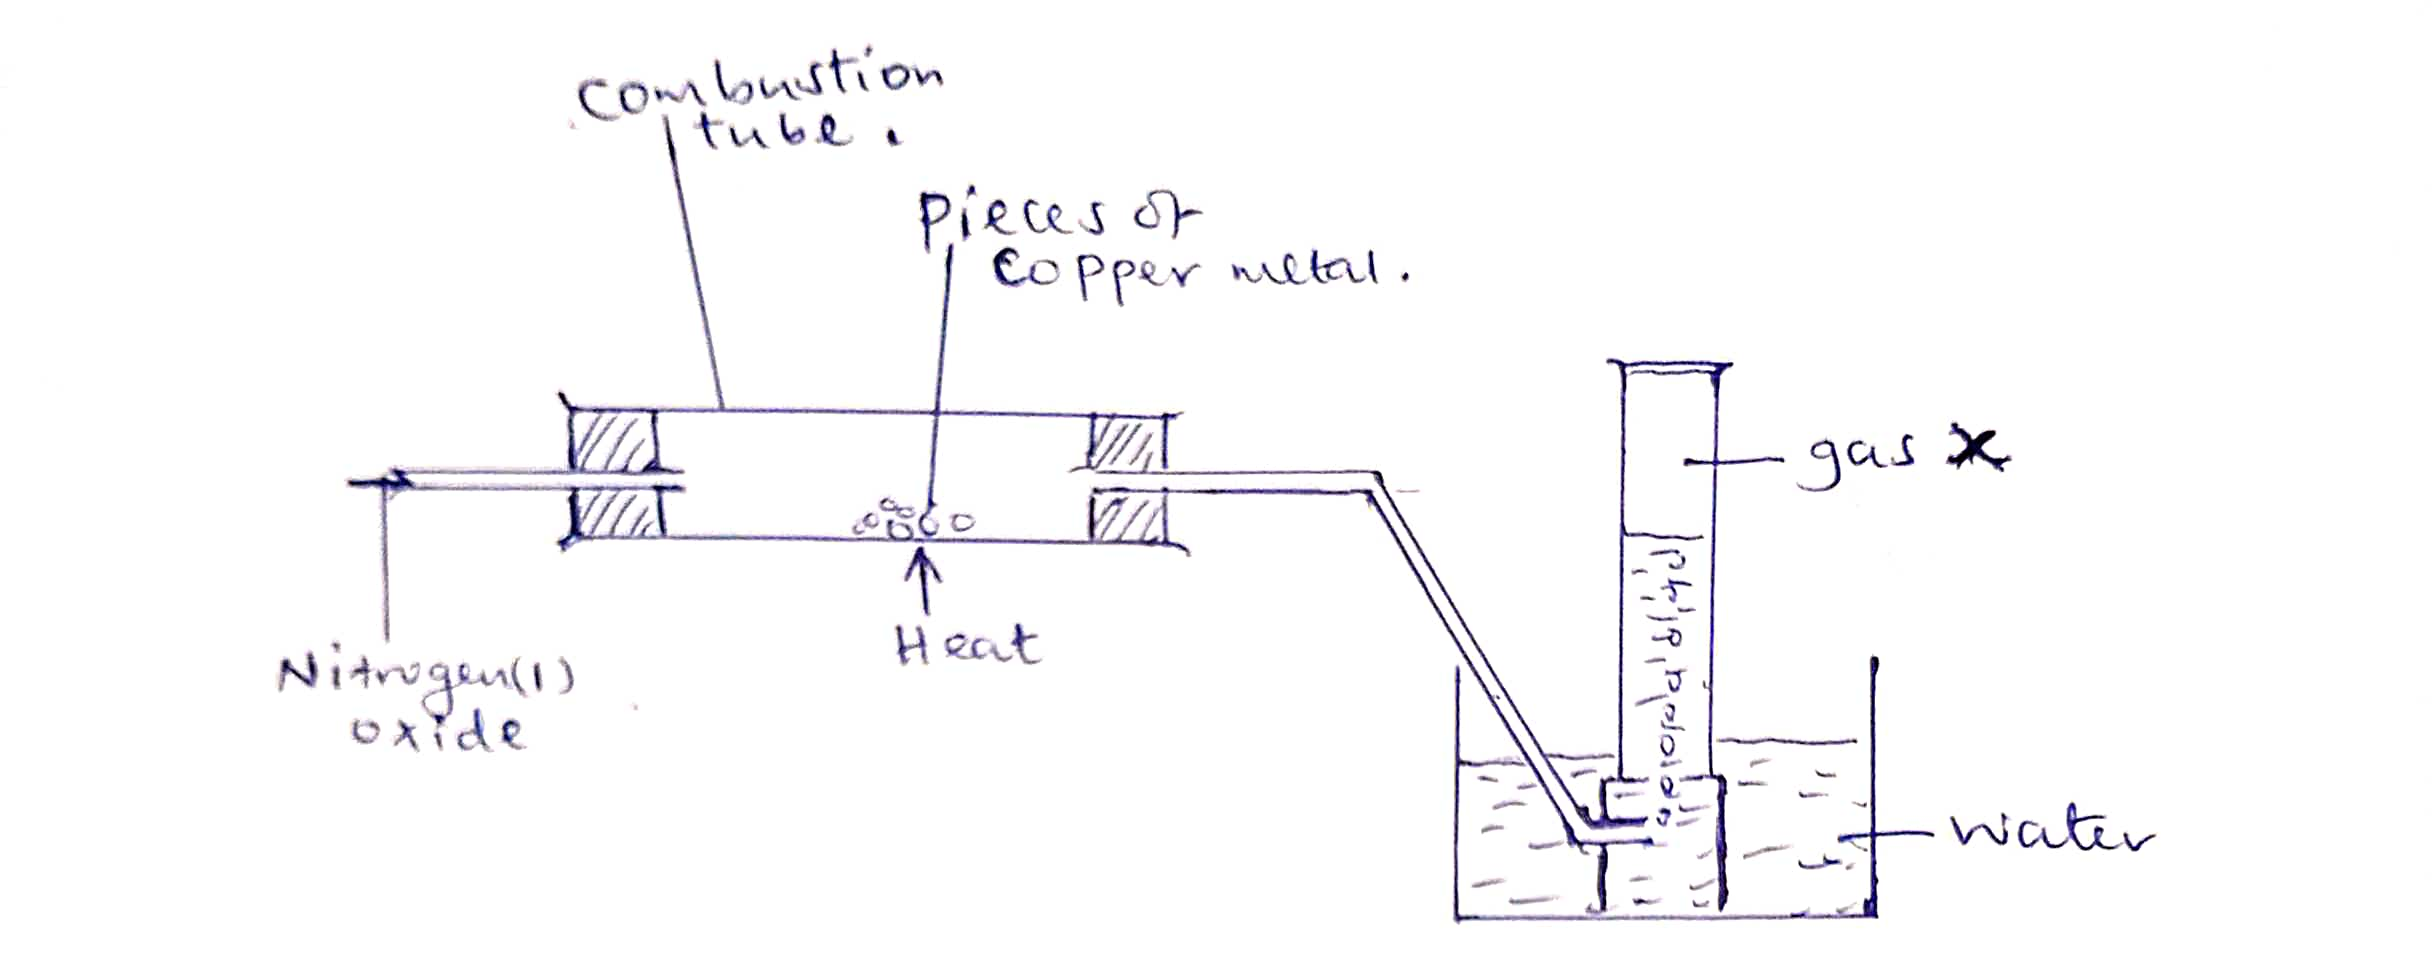 Combustion
tube.
Pieces of
Copper metal.
gas X
Heat
Nitrogen(1)
oxide
water